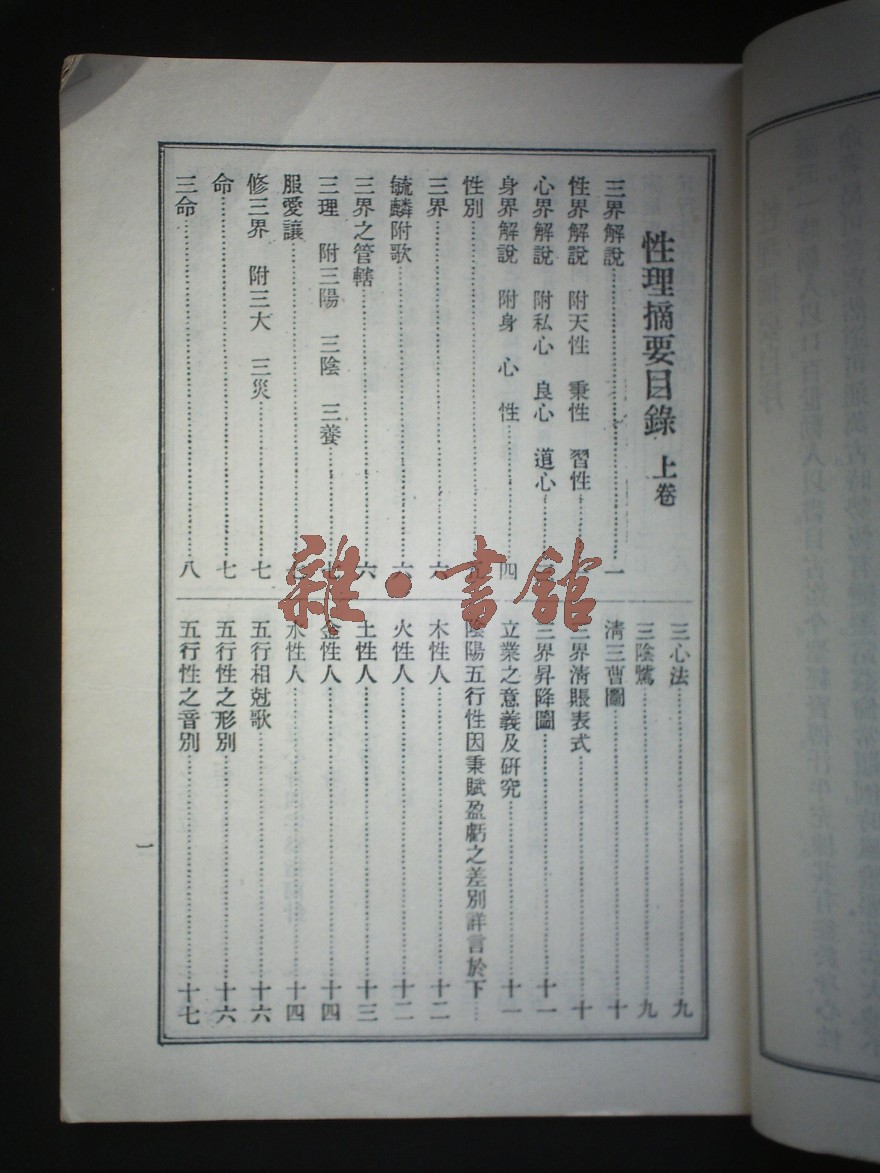 性理摘要目錄 上卷
三界解說……一
性界解說 附天性 秉性 習性……
心界解說 附私心 良心 道心……
身界解說 附身 心 性……四
性別……
三界……六
毓麟附歌……六
三界之管轄……六
三理 附三陽 三陰 三養……七
服愛讓……
修三界 附三大 三災……七
命……七
三命……八
三心法……九
三陰騭……九
清三曹圖……十
三界清賬表式……十
三界昇降圖……十一
立業之意義及研究……十一
陰陽五行性因秉賦盈虧之差別詳言於下……
木性人……十二
火性人……十二
土性人……十三
金性人……十四
水性人……十四
五行相尅歌……十六
五行性之形別……十六
五行性之音別……十七
一
雜·書館